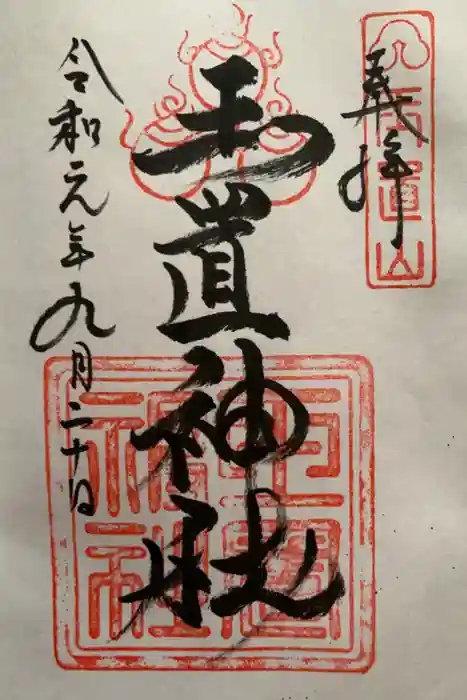 奉拝
玉置神社
令和元年九月二十日
玉置
神社